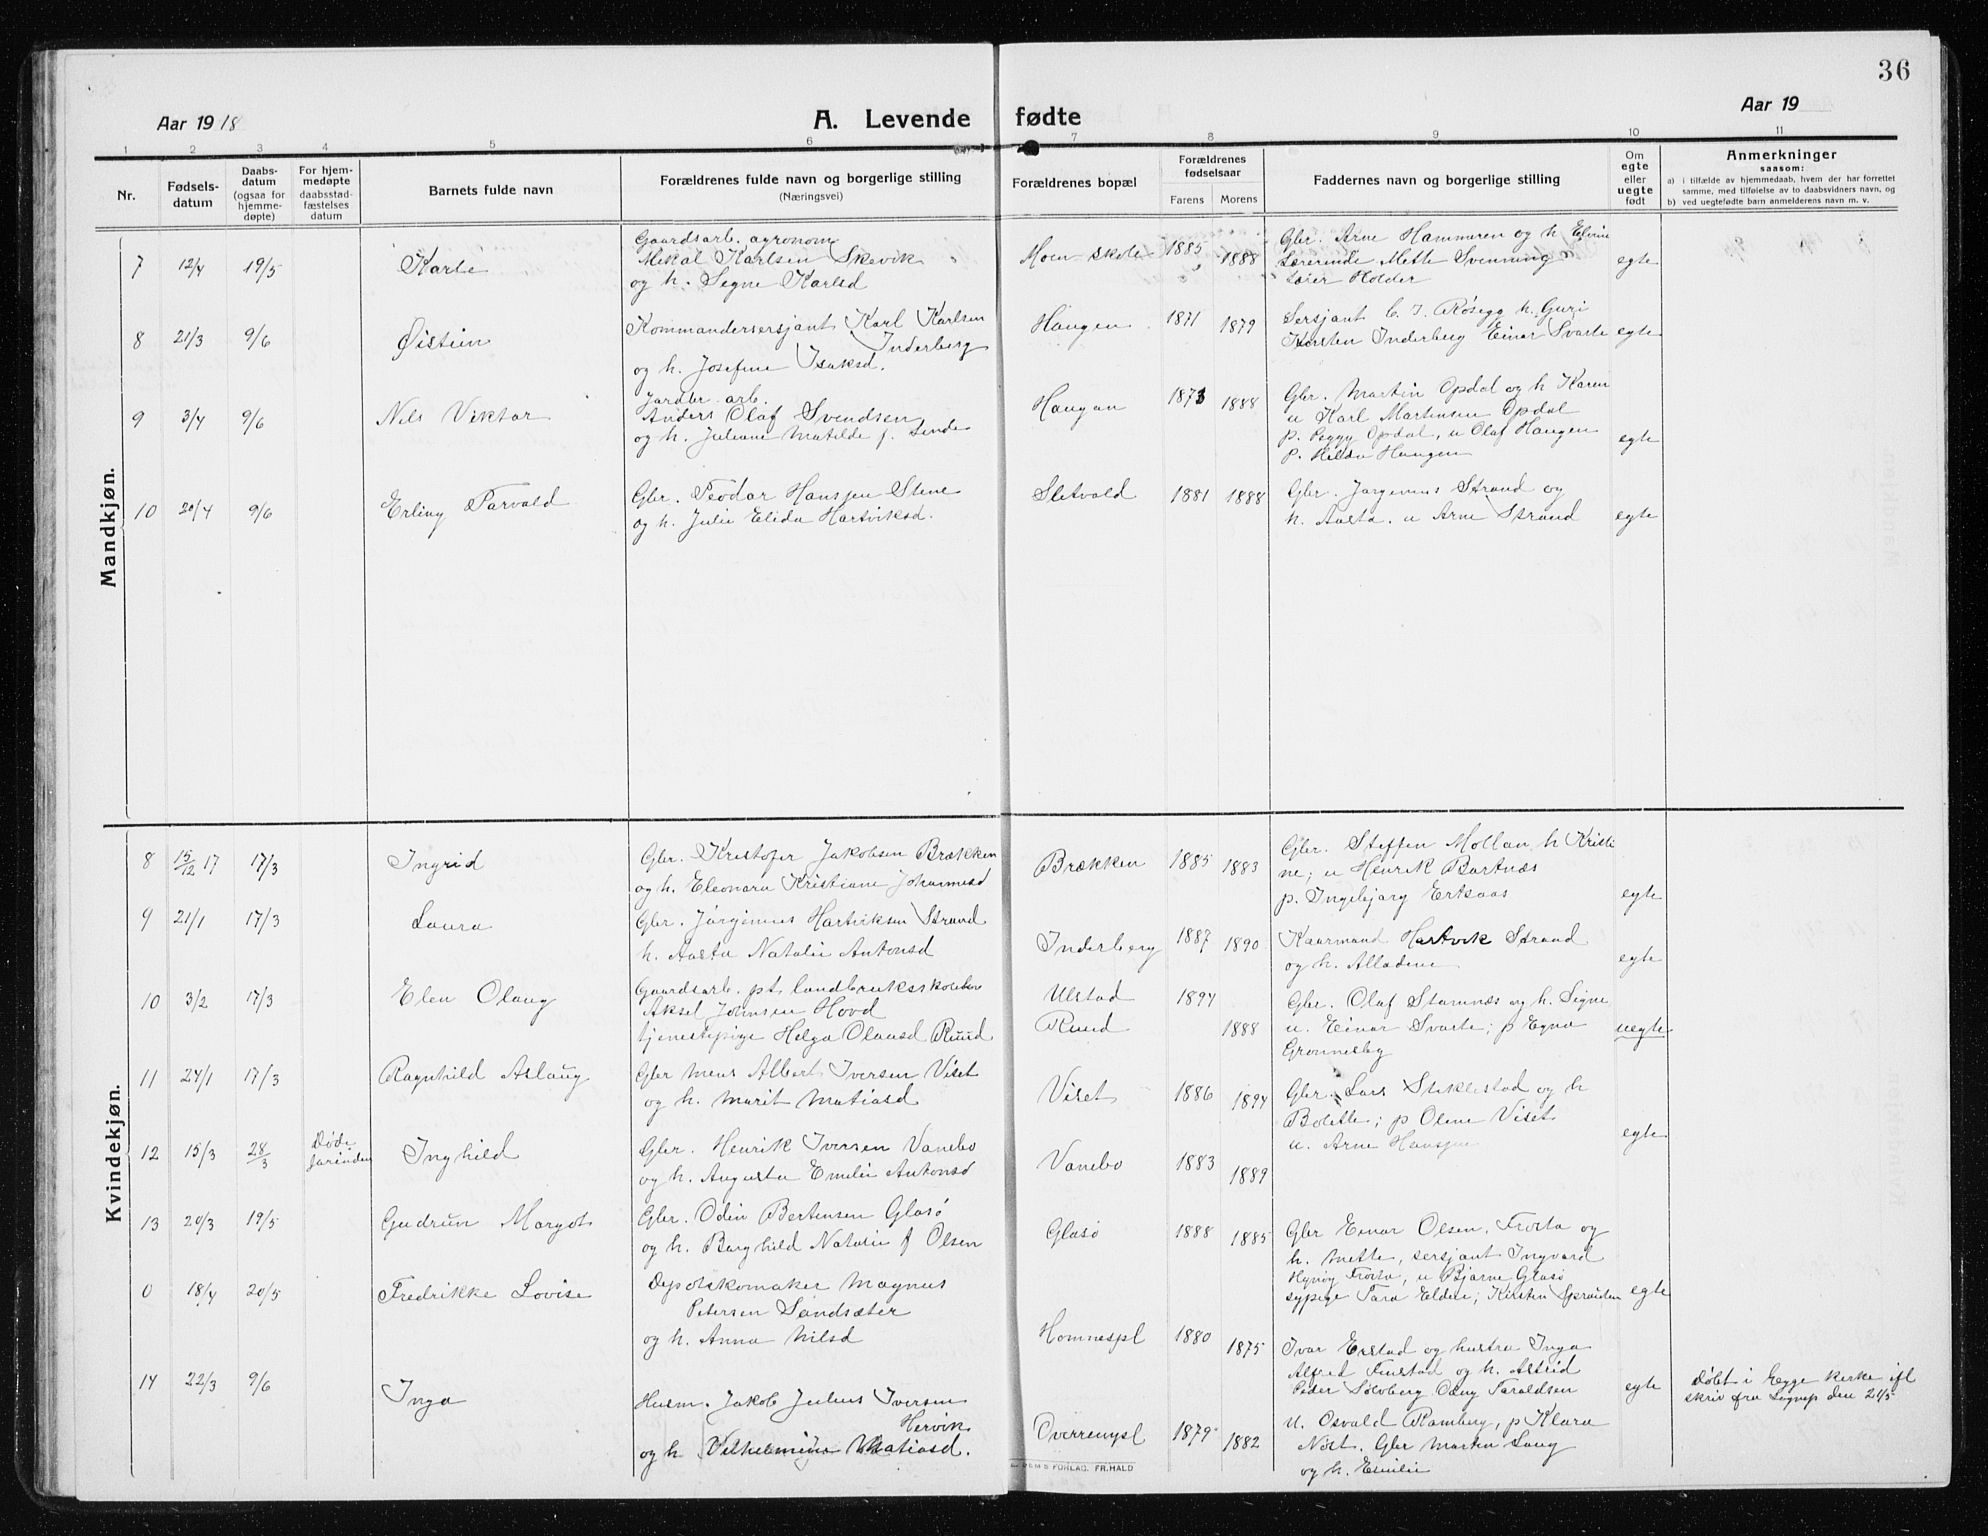 36
Aar 1918
A. Levende fødte
Aar 19
1 2 3 4 5 6 7 8 9 10 11
Nr.
Fødsels-
datum
Daabs-
datum
(ogsaa for
hjemme-
døpte)
For hjem-
medøpte
daabsstad-
fæstelses
datum
Barnets fulde navn
Forældrenes fulde navn og borgerlige stilling
(Næringsvei)
Forældrenes bopæl
Forældrenes
fødselsaar
Farens Morens
Faddernes navn og borgerlige stilling
Om
egte
eller
uegte
født
Anmerkninger
saasom:
a) i tilfælde av hjemmedaab, hvem der har forrettet
samme, med tilføielse av to daabsvidners navn, og
b) ved uegtefødte barn anmelderens navn m. v.
Mandkjøn.
7 12/4 19/5 Karle
Gaardsarb. agronom
Mikal Karlsen Skevik
og h. Segne Karlsd
Moen skole 1885 1888
Gbr. Arne Hammeren og h. Elvine
Lærerinde Mette Svenning
Holder
egte
8 21/3 9/6 Øistein
Kommandersersjant Karl Karlsen
Inderberg
og h. Josefine Isaksd.
Haugen 1871 1879
Sersjant C. J. Røsegg h. Guri
Karsten Inderberg Einar Svarte egte
9 3/4 9/6 Nils Viktor
Jarnbr. arb.
Anders Olaf Svendsen
og h. Juliane Matilde f. Linde
Haugan 1873 1888
Gbr. Martin Opdal og h Karen
u Karl Martinsen Opdal
p. Peggy Opdal, u Olaf Haugen
p. Hilda Haugen
egte
10 20/4 9/6 Erling Torvald
Gbr. Teodor Hansen Stene
og h. Julie Elida Hartviksd.
Sletvold 1881 1888
Gbr. Jørginus Strand og
h. Aasta. u Arne Strand
egte
Kvindekjøn.
8 15/12 17 17/3 Ingrid
Gbr. Kristofer Jakobsen Brækken
og h. Eleonora Kristiane Johannesd
Brækken 1885 1883
Gbr. Steffen Mollan h Kristi
ne; u Henrik Bartnæs
p. Ingebjørg Ertsaas
egte
9 21/1 17/3 Laura
Gbr. Jørginus Hartviksen Strand
h. Aasta Natalie Antonsd
Inderberg 1887 1890
Kaarmand Hartvik Strand
og h. Alladine
egte
10 3/2 17/3 Elen Olaug
Gaardsarb. pt. landbruksskolen
Aksel Johnsen Hovd
tjenestepige Helga Olausd Ruud
Ulstad 1894
Ruud 1888
Gbr. Olaf Stamnæs og h. Signe
u. Einar Svarte; p Egna
Grønnesby
uegte
11 24/1 17/3 Ragnhild Aslaug
Gbr Mens Albert Iversen Viset
og h. Marit Matiasd
Viset 1886 1894
Gbr. Lars Stiklestad og h
Bolette; p Oline Viset
u. Arne Hansen
egte
12 15/3 28/3 Død Inghild
Gbr. Henrik Iversen Vanebo
og h. Augusta Emilie Antonsd
Vanebo 1883 1889
13 20/3 19/5 Gudrun Margot
Gbr. Odin Bertinsen Glasø
og h. Borghild Natalie f Olsen
Glasø 1888 1885
Gbr Einar Olsen, Frosta og
h. Mette, sersjant Ingvard
Hynøy Frosta, u Bjarne Glasø
sypige Tara Elden; Kirsten
egte
0 18/4 20/5 Fredrikke Lovise
Depotskomaker Magnus
Petersen Sandsæter
og h. Anna Nilsd
Homnespl 1880 1875
Ivar Erstad og hustru Inga
Alfred Finstad og h. Astrid
Peder Solvberg Odny Taraldsen
egte
14 22/3 9/6 Inga
Husm. Jakob Julius Iversen
Hervik
og h Vilhelmine Matiasd.
Overremyspl 1879 1882
u. Osvald Ramberg, p Klara
Nøst. Gbr Martin Lang
og h. Emilie
Døbt i Egge kirke ifl
skriv fra Sognep den 21/5
FORLAG. FR. HALD